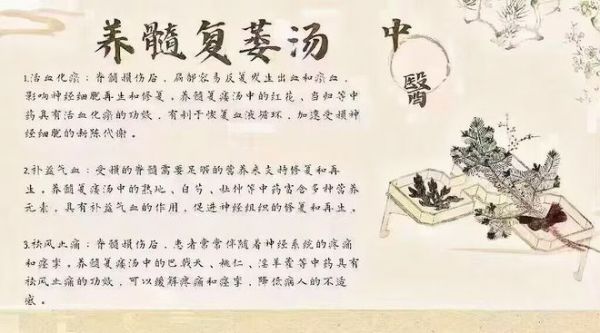 养髓复萎汤
中
醫
1.活血化瘀：脊髓损伤后，局部容易反复发生出血和瘀血，
影响神经细胞再生和修复。养髓复痿汤中的红花、当归等中
药具有活血化瘀的功效，有利于恢复血液循环，加速受损神
经细胞的新陈代谢。
2.补益气血：受损的脊髓需要足够的营养来支持修复和再
生。养髓复痿汤中的熟地、白芍、杜仲等中药富含多种营养
元素，具有补益气血的作用，促进神经组织的修复和再生。
3.祛风止痛：脊髓损伤后，患者常常伴随着神经系统的疼痛
和痉挛。养髓复痿汤中的巴戟天、桃仁、淫羊藿等中药具有
祛风止痛的功效，可以缓解疼痛和痉挛，降低病人的不适
感。